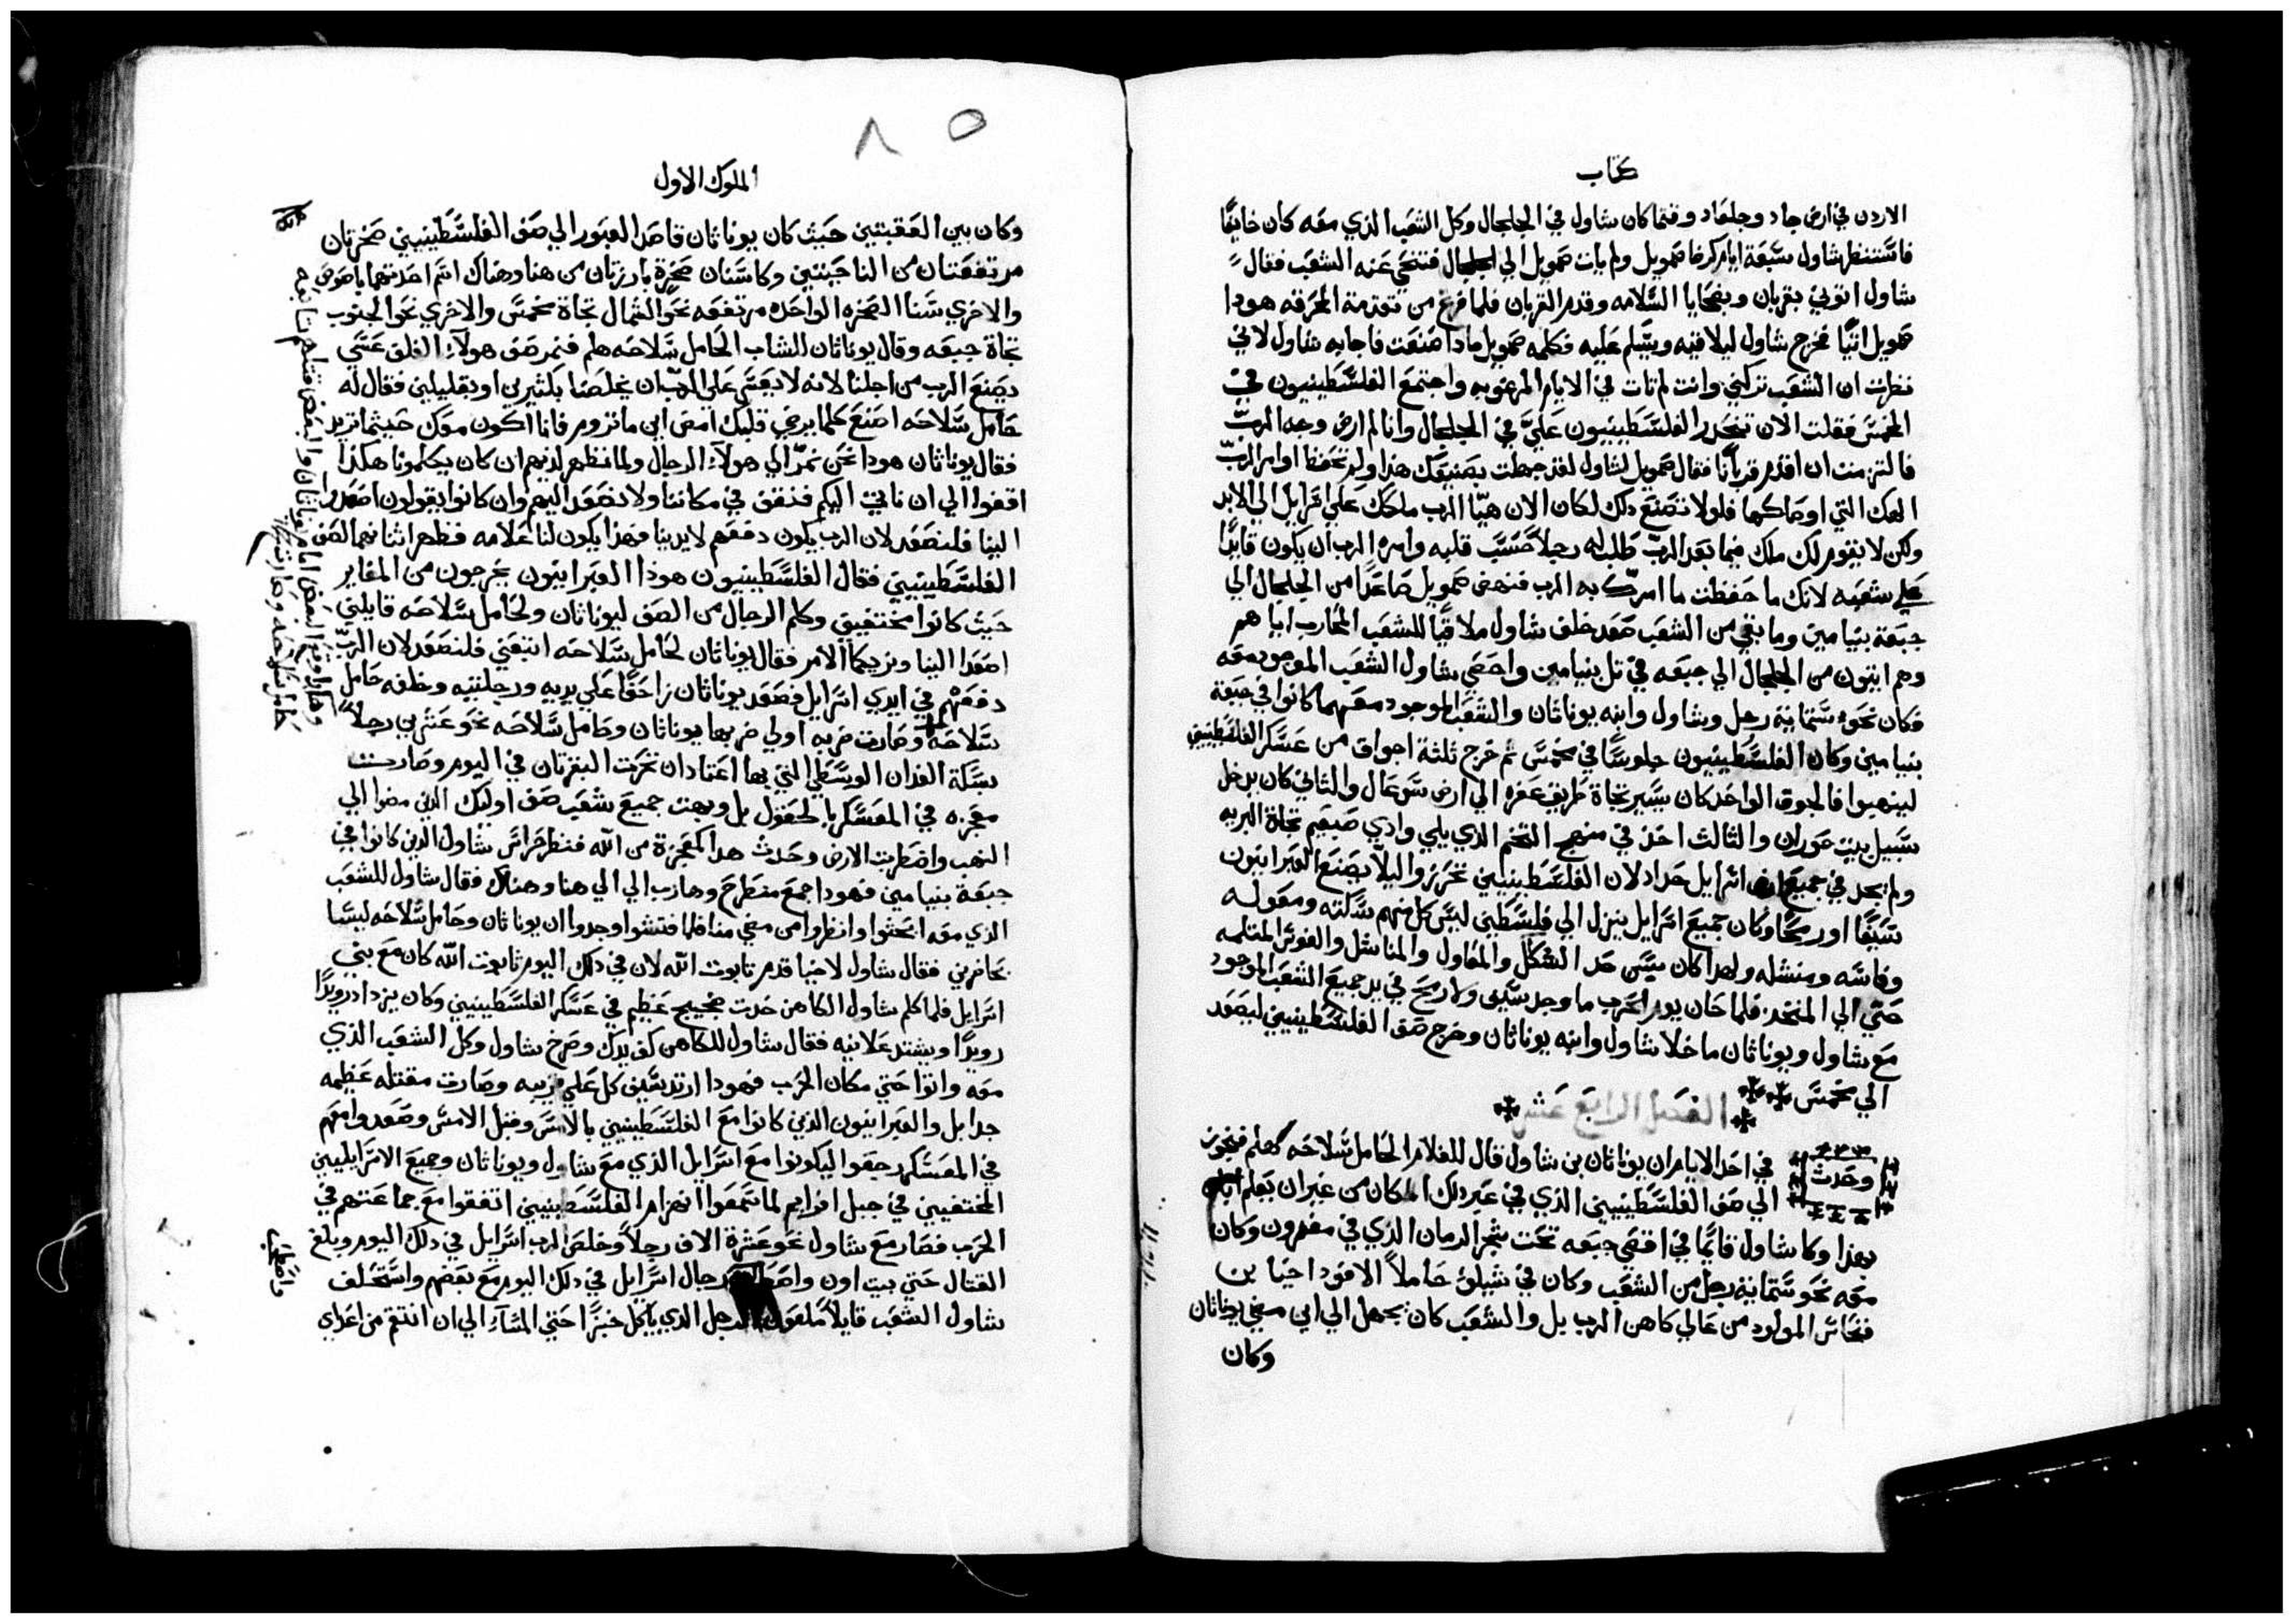 كتاب
الاردن في ارض جاد وجلعاد وفيما كان شاول في الجلجال وكل الشعب الذي معه كان خايفًا
فاستنظر شاول سبعة ايام كرضا صمويل ولم يات صمويل الي الجلجال فتنحي عنه الشعب فقال
شاول اتوني بقربان وبضحايا السلامه وقدم القربان فلما فرغ من تقدمة المحرقه هودا
صمويل اتيًا فخرج شاول ليلاقيه ويسلم عليه فكلمه صمويل مادا صنعت فاجابه شاول لاني
نظرت ان الشعب تركني وانت لم تات في الايام الموعوبه واجتمع الفلسطينيون في
المخمس فقلت الان تنحدر الفلسطينيون عليَّ في الجلجال وانا لم ارض وجه الربّ
فالتزمت ان اقدم قربانًا فقال صمويل لشاول لقد جهلت بصنيعك هذا ولم تحفظ اوامر الربّ
الهك التي اوصاكها فلولا تصنع دلك لكان الان هيّا الرب ملكك علي اسرايل الي الابد
ولكن لا يقوم لك ملك فيما بعد الربّ طلب له رجلاً حسب قلبه وامره الرب ان يكون قايدًا
علي شعبه لانك ما حفظت ما امرك به الرب فنهض صمويل صاعدًا من الجلجال الي
جبعة بنيامين وما بقي من الشعب صعد خلف شاول ملاقيًا للشعب المحارب اياهم
وهم اتيون من الجلجال الي جبعه في تل بنيامين واحصي شاول الشعب الموجود معه
فكان نحو ستماية رجل وشاول وابنه يوناثان والشعب الموجود معهما كانوا في جبعة
بنيامين وكان الفلسطينيون جلوسًا في مخمس ثم خرج ثلثة اجواق من عسكر الفلسطينيين
لينهبوا فالجوق الواحد كان يسير تجاة طريق عفره الي ارض سوعال والثاني كان يدخل
سبيل بيت حوران والثالث احد في منهج التخم الذي يلي وادي صبعيم تجاة البريه
ولم يجد في جميع ارض اسرايل حداد لان الفلسطينيين تحرزوا ليلا يصنع العبرانيون
سيفًا او رمحًا وكان جميع اسرايل ينزل الي فلسطين ليسن كل منهم سكته ومعوله
وفاسه ومنشله ولهدا كان يسن حد السكك والمعاول والمناشل والفوس المثلمه
حتي الي المنخد فلما حان يوم الحرب ما وجد سيف ولا رمح في يد جميع الشعب الموجود
مع شاول ويوناثان ما خلا شاول وابنه يوناثان وخرج صف الفلسطينيين ليصعد
الي مخمس الفصل الرابع عشر
وحدث في احد الايام ان يوناثان بن شاول قال للغلام الحامل سلاحه هلم فنجوز
الي صف الفلسطينيين الذي في عبر دلك المكان من غير ان يعلم اباه
بهذا وكا شاول قايمًا في اقصي جبعه تحت شجر الرمان الذي في مغرون وكان
معه نحو ستماية رجل من الشعب وكان في شيلو حاملاً الافود احيا بن
فنحاس المولود من عالي كاهن الرب بل والشعب كان يجهل الي اين مضي يوناثان
وكان
٨٥
الملوك الاول
وكان بين العقبتين حيث كان يوناثان قاصد العبور الي صف الفلسطينيين صخرتان
مرتفعتان من الناحيتين وكاسنان صخرة بارزتان من هنا وهناك اسم احدتهما باصوص
والاخري سنا الصخره الواحده مرتفعه نحو الشمال تجاة مخمس والاخري نحو الجنوب
تجاة جبعه وقال يوناثان للشاب الحامل سلاحه هلم فنمر صف هولآء الغلف عسي
يصنع الرب من اجلنا لانه لا يعسر علي الربّ ان يخلص بكثيرين او بقليلين فقال له
حامل سلاحه اصنع كلما يرضي قلبك امض اين ما تروم فانا اكون معك حيثما تريد
فقال يوناثان هودا نحن نمرّ الي هولآء الرجال ولما نظهر لديهم ان كان يكلمونا هكذا
اقفوا الي ان ناتي اليكم فنقف في مكاننا ولا نصعد اليهم وان كانوا يقولون اصعدوا
الينا فلنصعد لان الرب يكون دفعهم لايدينا فهذا يكون لنا علامه فظهر اثنانهما لصف
الفلسطينيين فقال الفلسطينيون هوذا العبرانيون يخرجون من المغاير
حيث كانوا مختفيين وكلم الرجال من الصف ليوناثان ولحامل سلاحه قايلين
اصعدا الينا ونريكما الامر فقال يوناثان لحامل سلاحه اتبعني فلنصعد لان الربّ
دفعهم في ايدي اسرايل فصعد يوناثان زاحفًا علي يديه ورجليه وخلفه حامل
سلاحه وصارت ضربه اولي ضربها يوناثان وحامل سلاحه نحو عشرين رجلاً
بسكة الفدان الوسطي التي بها اعتاد ان تحرث البقرتان في اليوم وصارت
معجزه في المعسكر بالحقول بل وبهت جميع شعب صف اوليك الذين مضوا الي
النهب واضطربت الارض وحدث هدا كمعجزة من الله فنظر حراس شاول الذين كانوا في
جبعة بنيامين فهودا جمع منطرح وهارب الي الي هنا وهناك فقال شاول للشعب
الذي معه ابحثوا وانظروا من مضي منا فلما فتشوا وجدوا ان يوناثان وحامل سلاحه ليسا
بحاضرين فقال شاول لاحيا قدم تابوت الله لان في دلك اليوم تابوت الله كان مع بني
اسرايل فلما كلم شاول الكاهن حدث ضجيج عظيم في عسكر الفلسطينيين وكان يزداد رويدًا
رويدًا ويشتد علانيه فقال شاول للكاهن كف يدك وصرخ شاول وكل الشعب الذي
معه واتوا حتي مكان الحرب فهودا ارتد سيف كل علي قريبه وصارت مقتله عظيمه
جدا بل والعبرانيون الذين كانوا مع الفلسطينيين بالامس وقبل الامس وصعدوا معهم
في المعسكر رجعوا ليكونوا مع اسرايل الذي مع شاول ويوناثان وجميع الاسراييليين
المختفيين في جبل افرايم لما سمعوا انهزام الفلسطينيين اتفقوا مع جماعتهم في
الحرب فصار مع شاول نحو عشرة الاف رجلاً وخلص الرب اسرايل في دلك اليوم وبلغ
القتال حتي بيت اون رجال اسرايل في دلك اليوم مع بعضهم واستحلف
شاول الشعب قايلاً ملعون الرجل الذي ياكل خبزًا حتي المسآء الي ان انتقم من اعداي